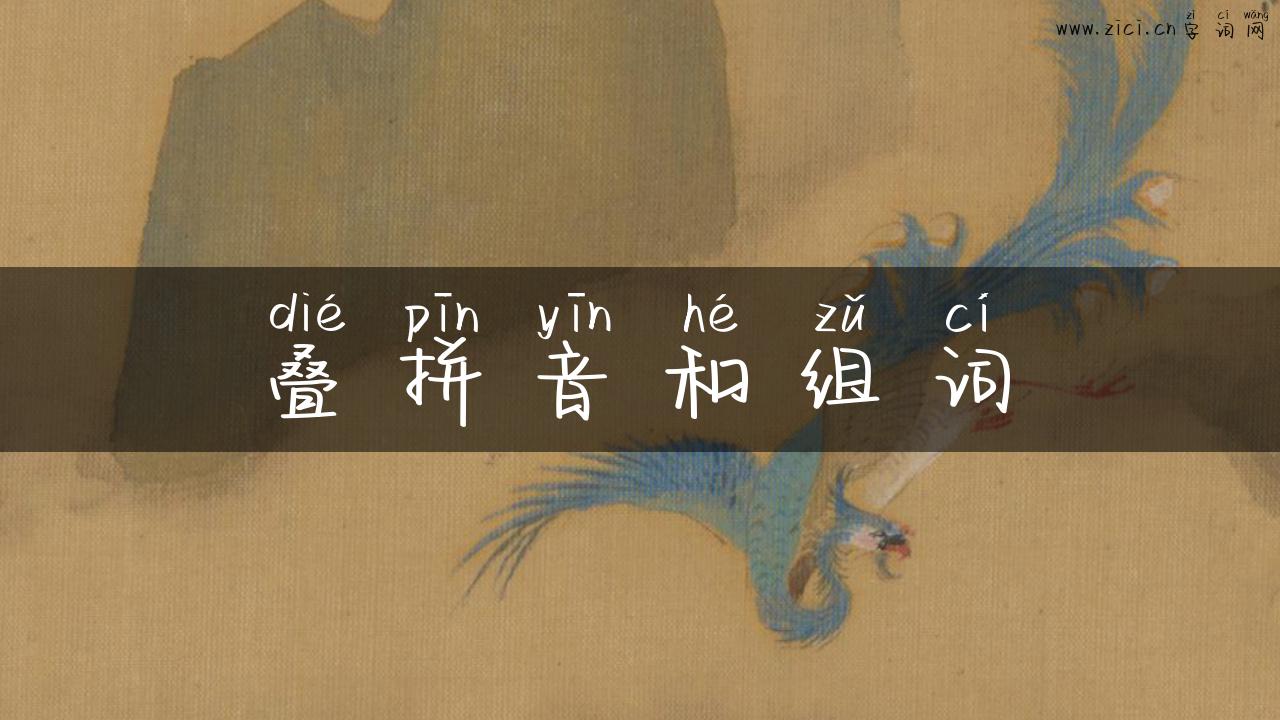 zì cí wǎng
www.zici.cn 字词网
dié pīn yīn hé zǔ cí
叠拼音和组词